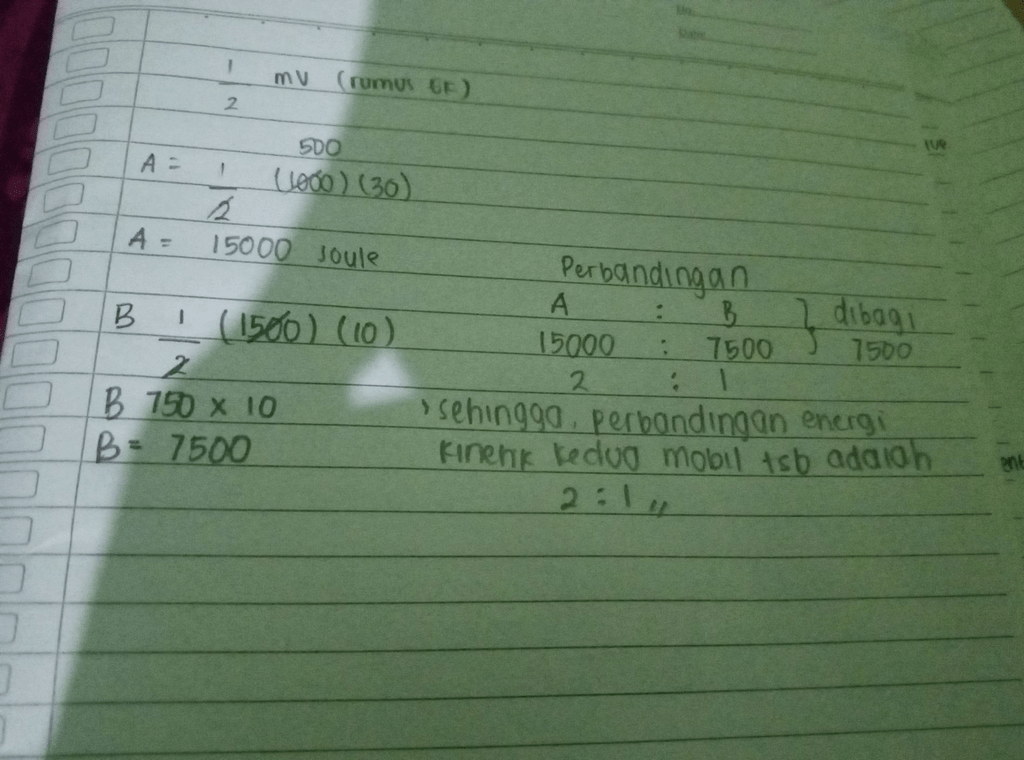 1/2 mv (rumus EK)
500
A = 1/2 (1000) (30)
A = 15000 Joule
B 1/2 (1500) (10)
B 750 x 10
B = 7500
Perbandingan
A : B } dibagi
15000 : 7500 7500
2 : 1
sehingga, perbandingan energi
kinetik kedua mobil tsb adalah
2 : 1 //